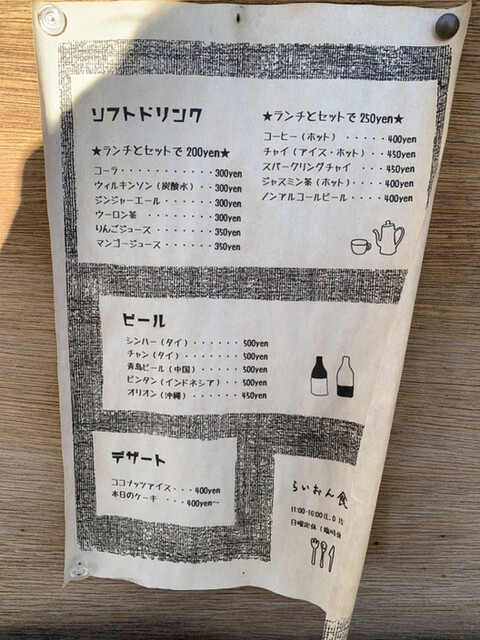 ソフトドリンク
★ランチとセットで 200yen★
コーラ・・・・・・・・・・・・300yen
ウィルキンソン（炭酸水）・・300yen
ジンジャーエール・・・・・・・300yen
ウーロン茶・・・・・・・・・・300yen
りんごジュース・・・・・・・・350yen
マンゴージュース・・・・・・・350yen
★ランチとセットで 250yen★
コーヒー（ホット）・・・・・400yen
チャイ（アイス・ホット）・・450yen
スパークリングチャイ・・・・450yen
ジャスミン茶（ホット）・・・400yen
ノンアルコールビール・・・・400yen
ビール
シンハー（タイ）・・・・・・500yen
チャン（タイ）・・・・・・・500yen
青島ビール（中国）・・・・・500yen
ビンタン（インドネシア）・・500yen
オリオン（沖縄）・・・・・・450yen
デザート
ココナッツアイス・・・400yen
本日のケーキ ・・・400yen〜
らいおん食
11:00-16:00(L.O 15
日曜定休（臨時休